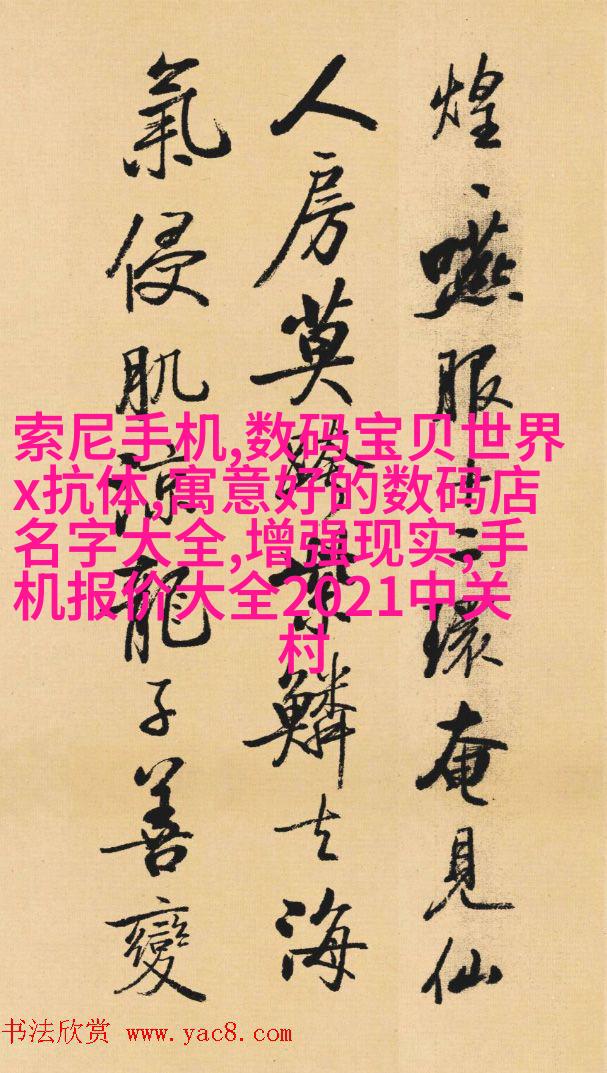 煌、嚥服十二環奄見仙
人房莫跨紫鱗去海
氣侵肌涼龍子善變
索尼手机,数码宝贝世界
x抗体,寓意好的数码店
名字大全,增强现实,手
机报价大全2021中关
村
书法欣赏 www.yac8.com